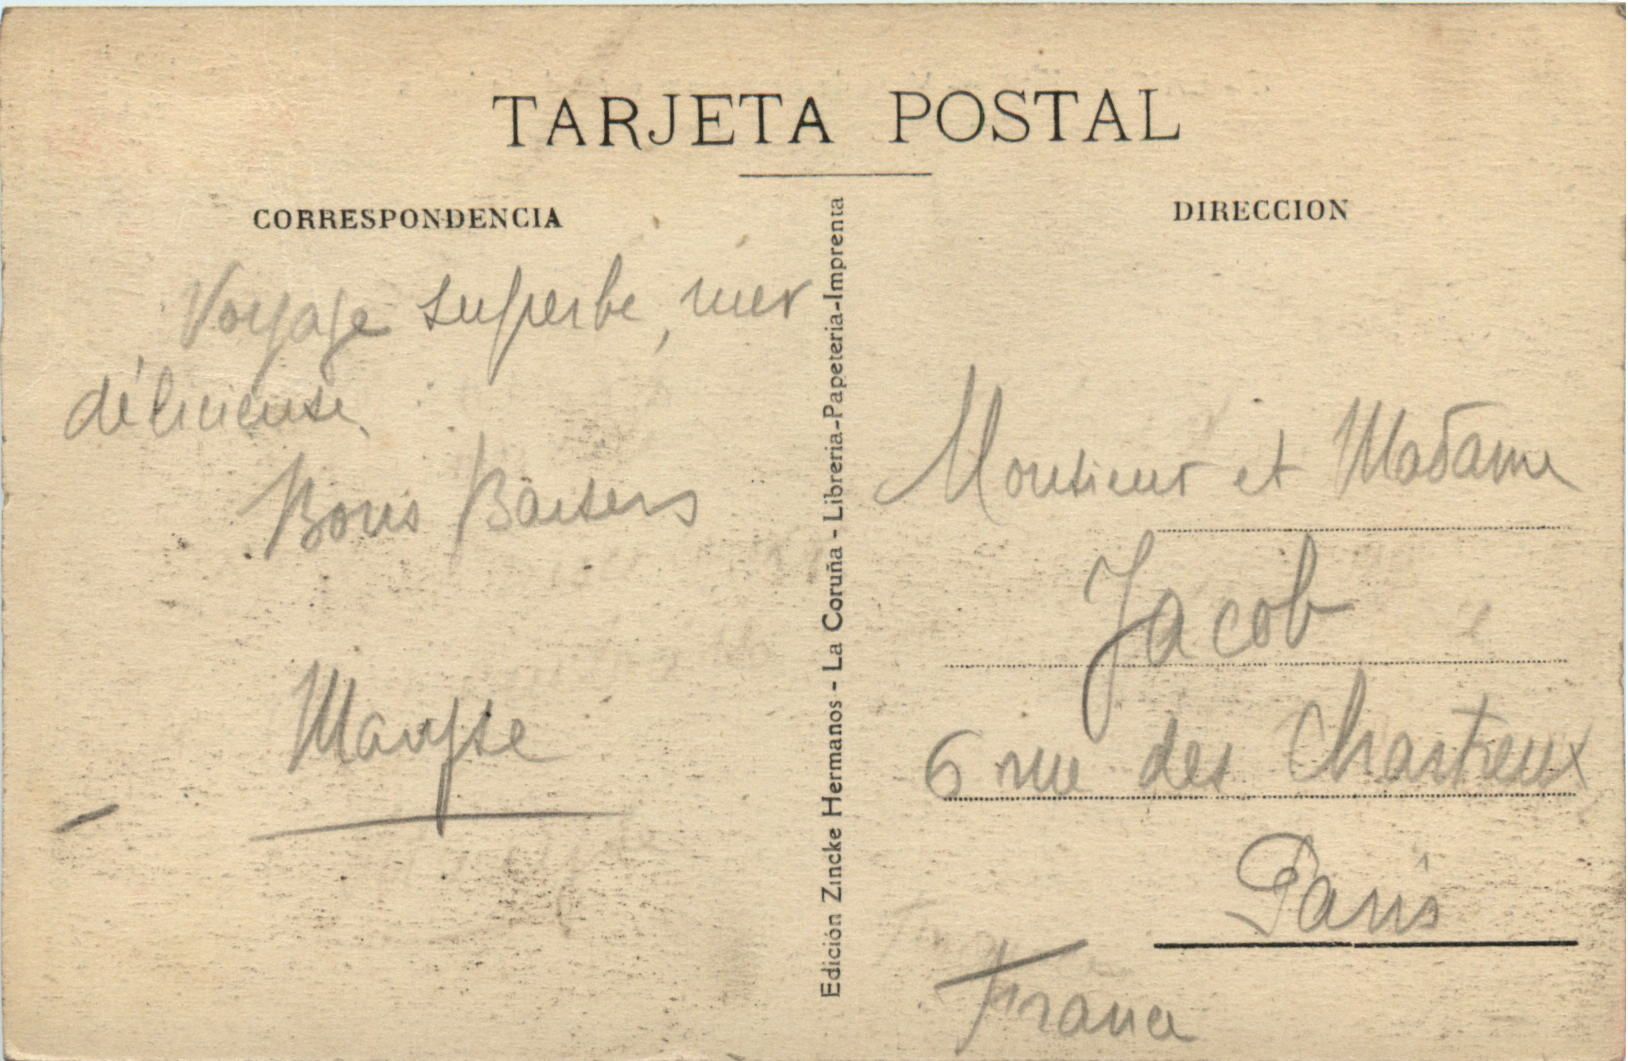 TARJETA POSTAL
CORRESPONDENCIA
Voyage superbe, mer
délicieuse.
Bons Baisers
Maryse
Edición Zincke Hermanos - La Coruña - Libreria-Papeteria-Imprenta
DIRECCION
Monsieur et Madame
Jacob
6 rue des Chartreux
Paris
France